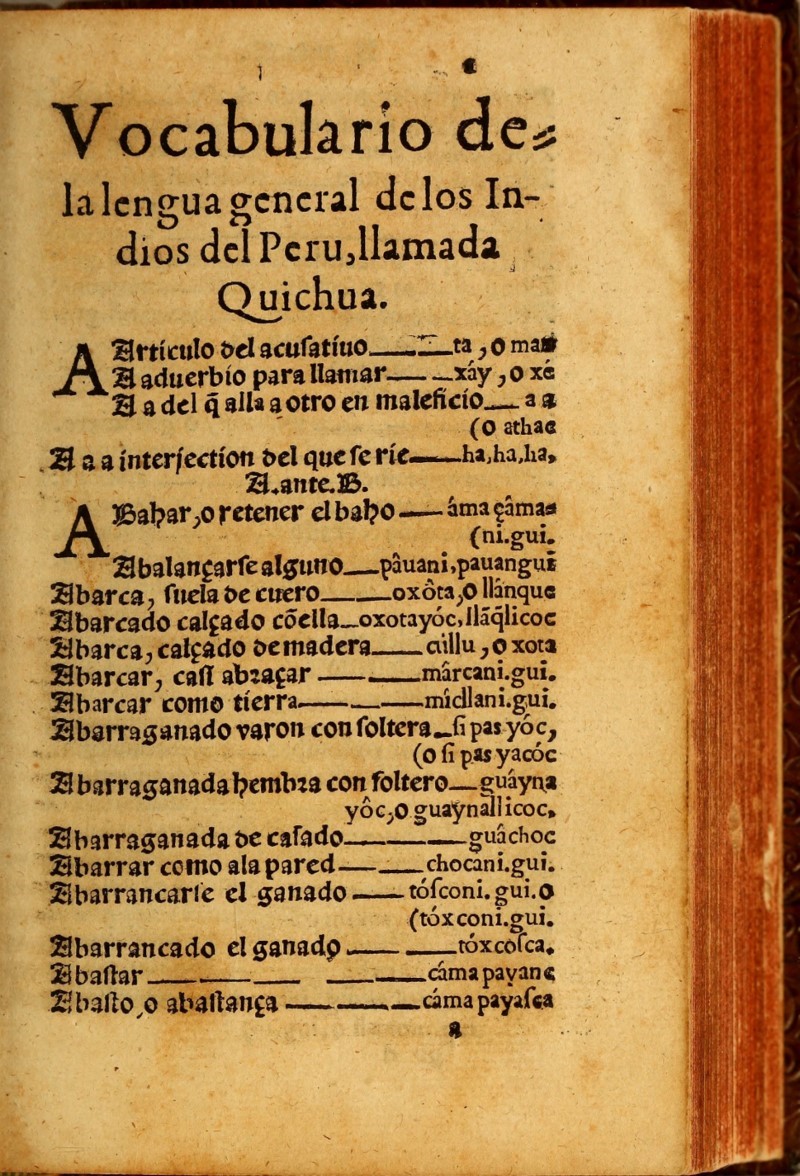 1
Vocabulario de
la lengua general de los In-
dios del Peru, llamada
Quichua.
A Articulo del acusatiuo——ta, o ma
A aduerbio para llamar——xáy, o xe
A a del q̃ alla a otro en maleficio——a a
(o athac
A a a interjection del que se ríe——ha,ha,ha,
A.ante.B.
A Bahar, o retener el baho——áma çáma
(ni.gui.
Abalançarse alguno——páuani,pauangui
Abarca, suela de cuero——oxôta,o llánque
Abarcado calçado cõ ella—oxotayóc,lláq̃licoc
Abarca, calçado de madera——aillu, o xota
Abarcar, casi abraçar——márcani.gui.
Abarcar como tierra——micllani.gui.
Abarraganado varon con soltera—si pas yóc,
(o si pas yacóc
Abarraganada hembra con soltero—guáyna
yôc,o guaynallicoc,
Abarraganada de casado——guáchoc
Abarrar como a la pared——chocáni.gui.
Abarrancarse el ganado——tósconi.gui.o
(tóxconi.gui.
Abarrancado el ganado——tóxcosca.
Abastar——cámapayan
Abasto, o abastança——cámapayasca
a